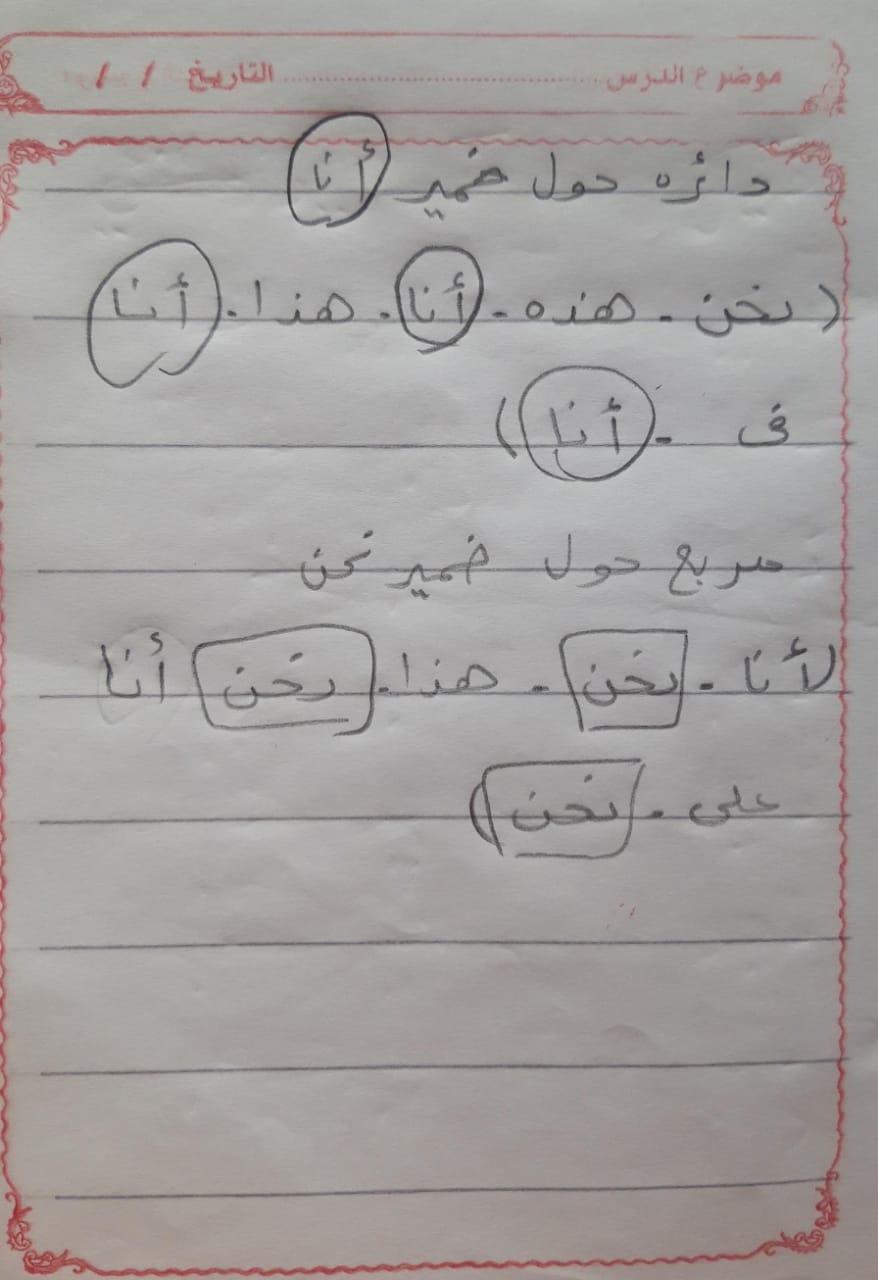 موضوع الدرس ........................ التاريخ / /
دائره حول ضمير أنا
( نحن - هذه - أنا - هذا - أنا
فى - أنا )
مربع حول ضمير نحن
( أنا - نحن - هذا - نحن أنا
على - نحن )